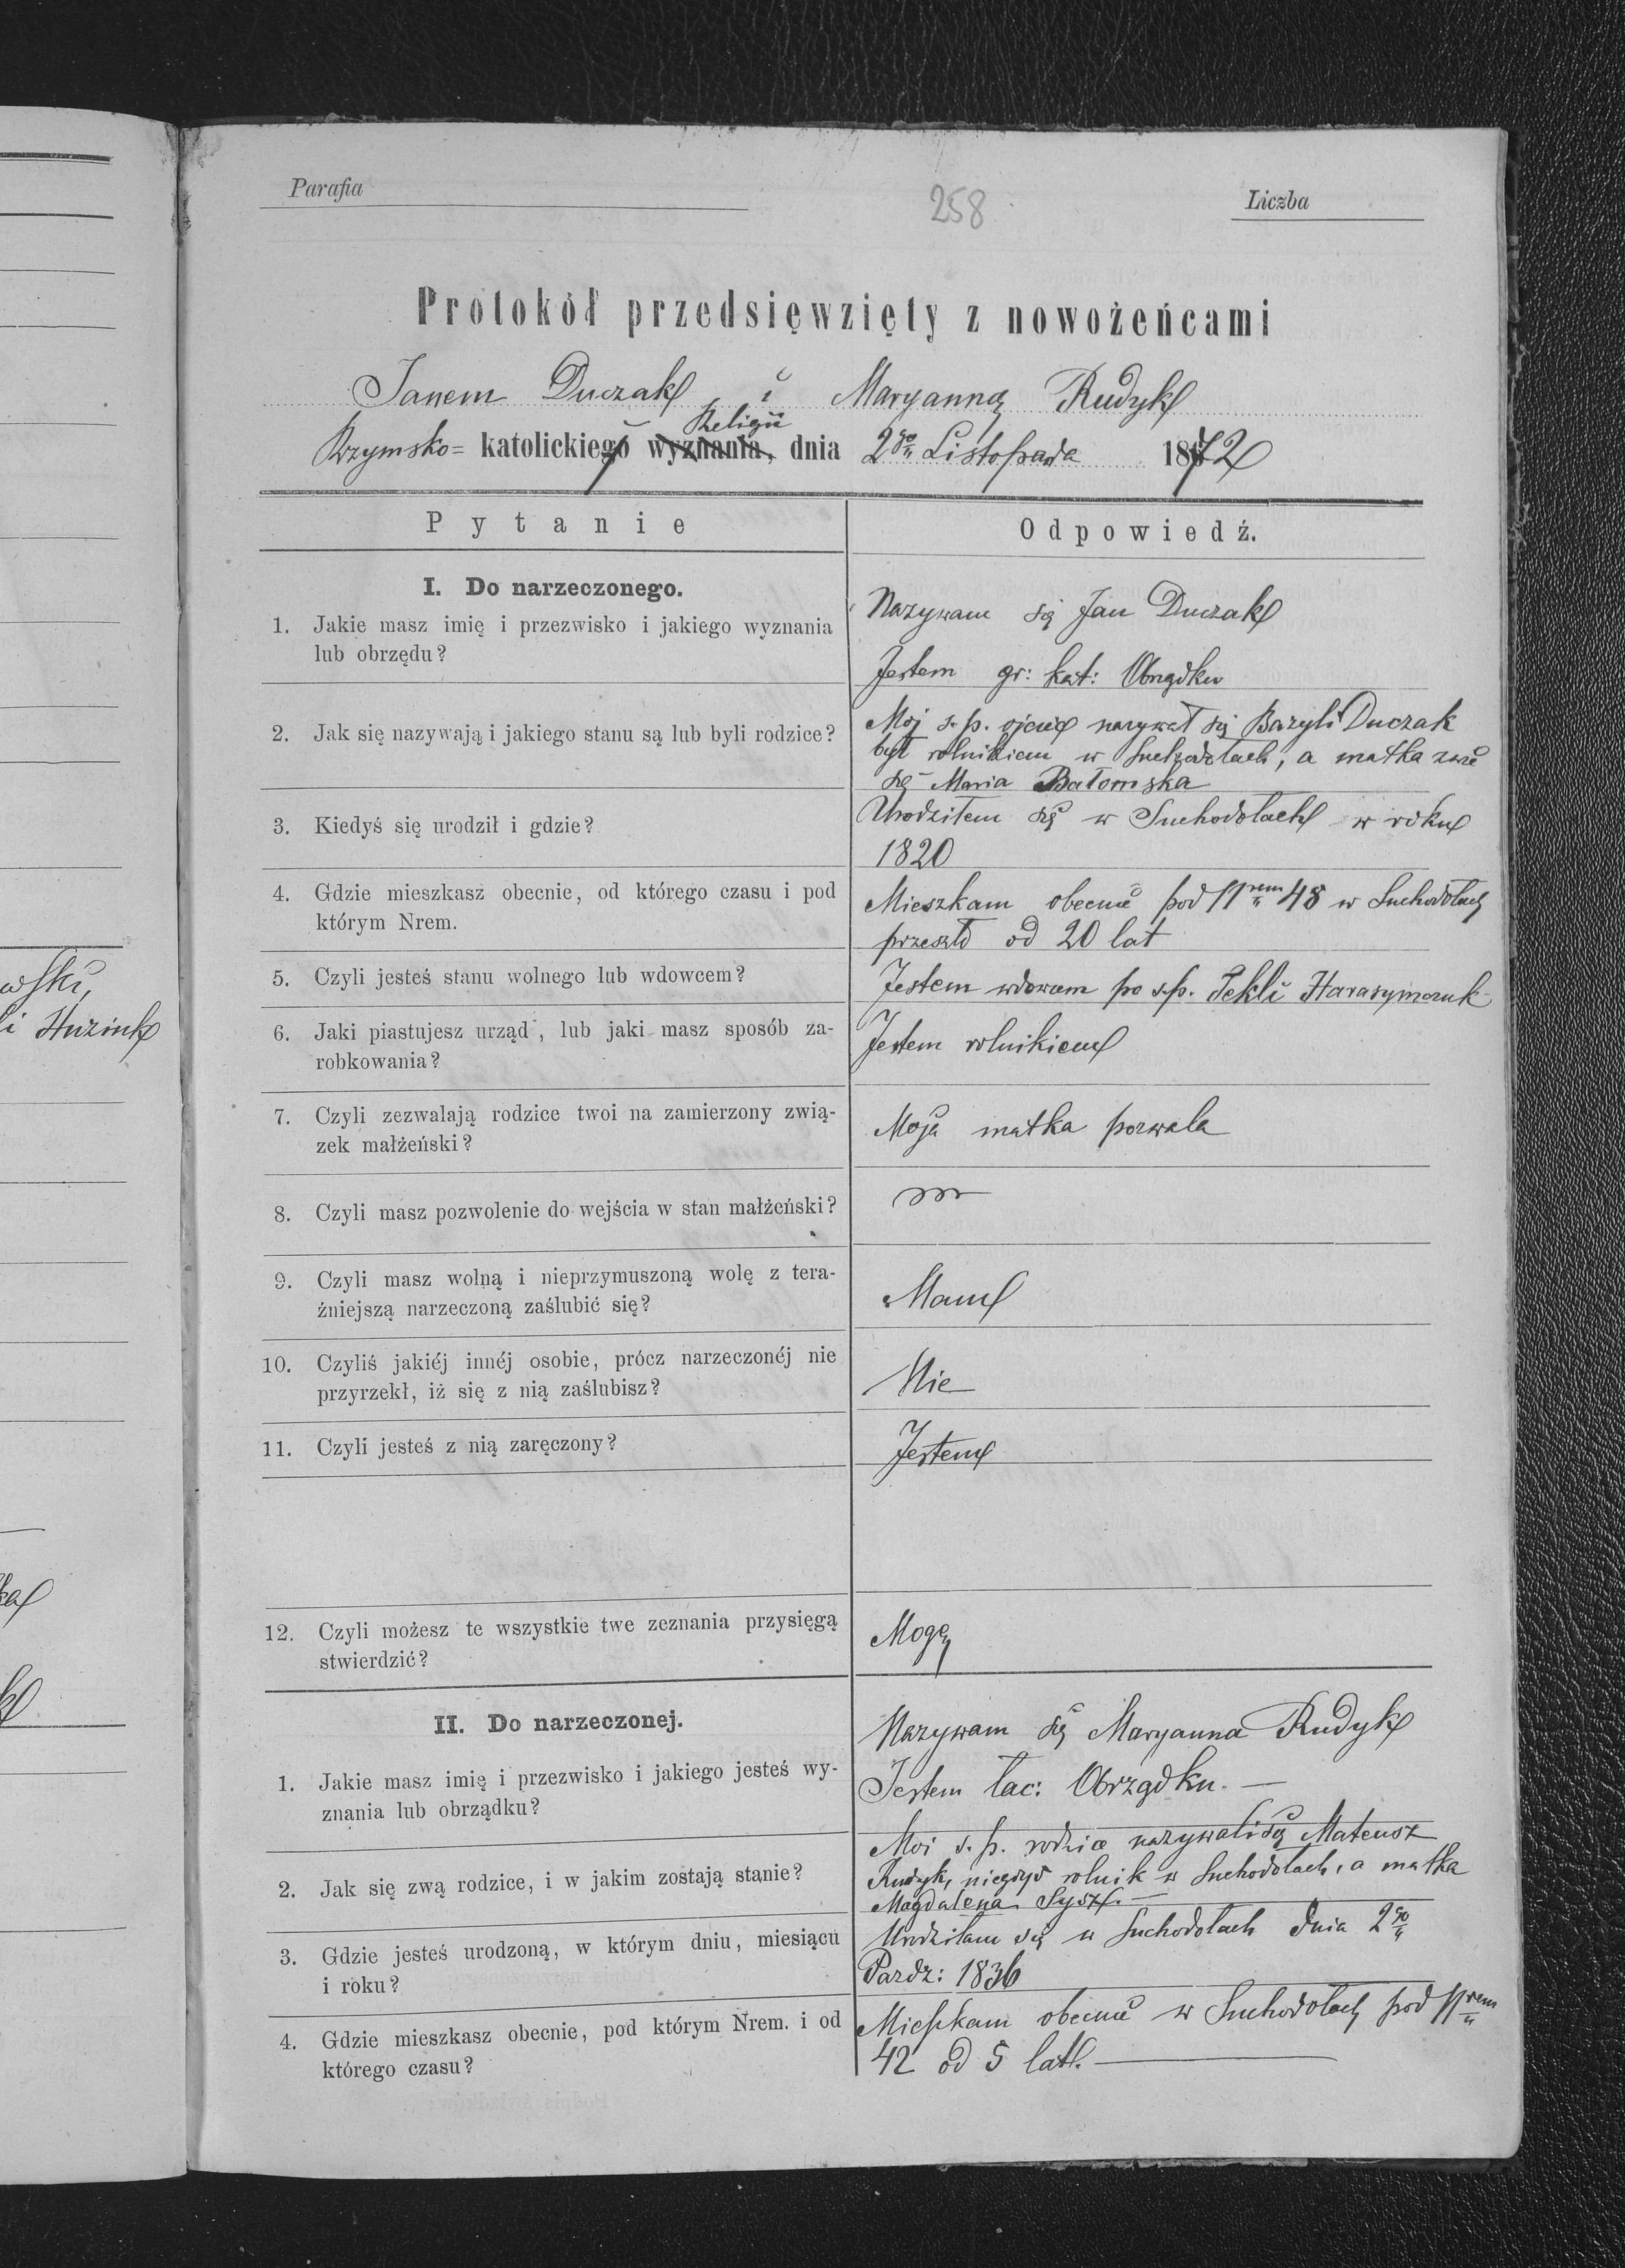 Parafia
258
Liczba
Protokół przedsięwzięty z nowożeńcami
Janem Duczak i Maryanną Rudyk
Religii
Rzymsko= katolickiego wyznania, dnia 2go Listopada 1872
Pytanie
Odpowiedź.
I. Do narzeczonego.
1. Jakie masz imię i przezwisko i jakiego wyznania
lub obrzędu?
Nazywam się Jan Duczak
Jestem gr: kat: Obrządku
2. Jak się nazywają i jakiego stanu są lub byli rodzice?
Moj s. p. ojciec nazywał się Bazyli Duczak
był rolnikiem w Suchodołach, a matka zwie
się Maria Bałomska
3. Kiedyś się urodził i gdzie?
Urodziłem się w Suchodołach w roku
1820
4. Gdzie mieszkasz obecnie, od którego czasu i pod
którym Nrem.
Mieszkam obecnie pod Nrem 48 w Suchodołach
przeszło od 20 lat
5. Czyli jesteś stanu wolnego lub wdowcem?
Jestem wdowcem po s.p. Tekli Harasymczuk
6. Jaki piastujesz urząd, lub jaki masz sposób za-
robkowania?
Jestem rolnikiem
7. Czyli zezwalają rodzice twoi na zamierzony zwią-
zek małżeński?
Moja matka pozwala
8. Czyli masz pozwolenie do wejścia w stan małżeński?
9. Czyli masz wolną i nieprzymuszoną wolę z tera-
źniejszą narzeczoną zaślubić się?
Mam
10. Czyliś jakiéj innéj osobie, prócz narzeczonéj nie
przyrzekł, iż się z nią zaślubisz?
Nie
11. Czyli jesteś z nią zaręczony?
Jestem
12. Czyli możesz te wszystkie twe zeznania przysięgą
stwierdzić?
Mogę
II. Do narzeczonej.
1. Jakie masz imię i przezwisko i jakiego jesteś wy-
znania lub obrządku?
Nazywam się Maryanna Rudyk
Jestem łac: Obrządku. —
2. Jak się zwą rodzice, i w jakim zostają stanie?
Moi s. p. rodzice nazywali się Mateusz
Rudyk, niegdyś rolnik w Suchodołach, a matka
Magdalena Sysz. —
3. Gdzie jesteś urodzoną, w którym dniu, miesiącu
i roku?
Urodziłam się w Suchodołach dnia 2go
Pazdz: 1836
4. Gdzie mieszkasz obecnie, pod którym Nrem. i od
którego czasu?
Mieszkam obecnie w Suchodołach pod Nrem
42 od 5 lat. —
wski,
li Huzink